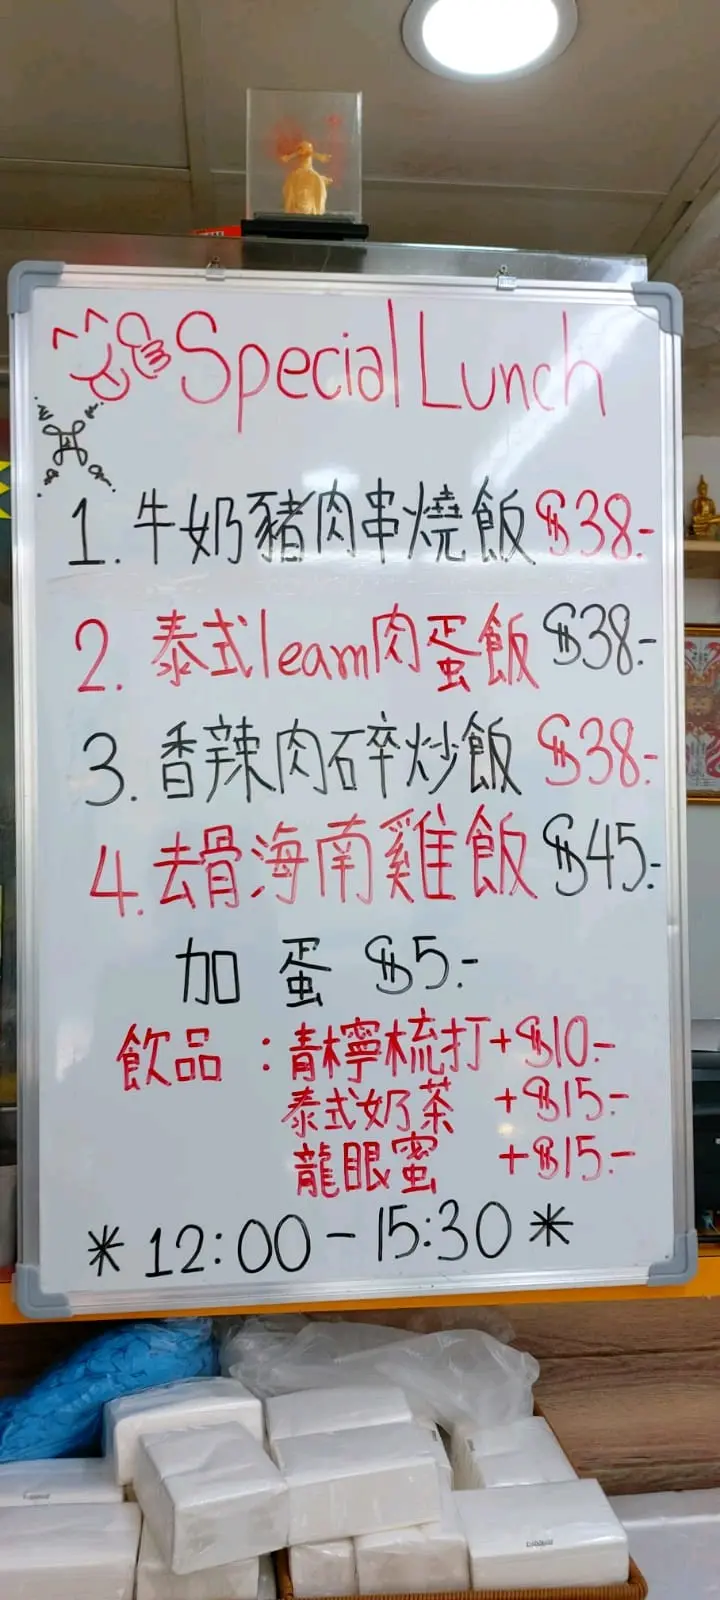 Special Lunch
1. 牛奶豬肉串燒飯 $38.-
2. 泰式leam肉蛋飯 $38.-
3. 香辣肉碎炒飯 $38.-
4. 去骨海南雞飯 $45.-
加蛋 $5.-
飲品：青檸梳打+$10.-
泰式奶茶 +$15.-
龍眼蜜 +$15.-
* 12:00 - 15:30 *